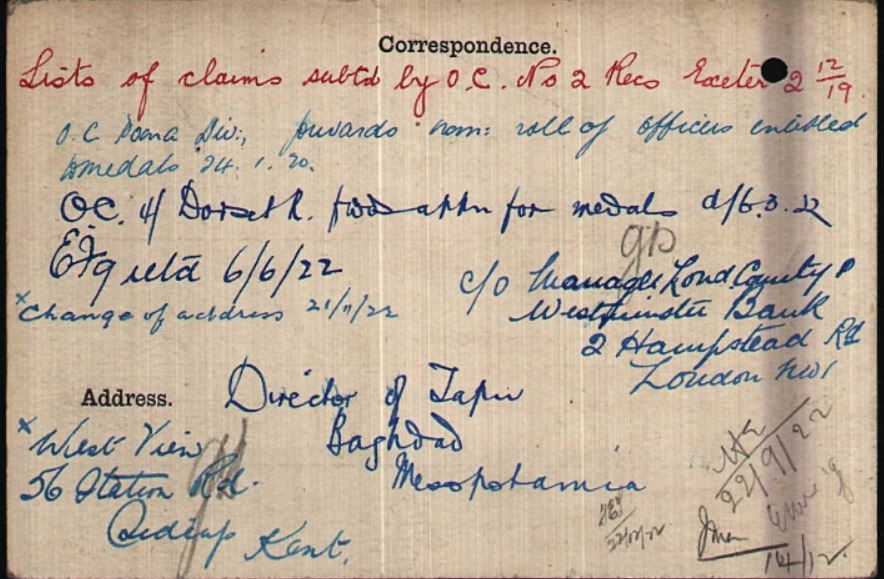 Correspondence.
Lists of claims subtd by O.C. No 2 Recs Exeter 2 12/19.
O.C. Poona Div:, forwards nom: roll of officers entitled
to medals 24.1.20.
O.C. 4/ Dorset R. fwds appn for medals d/6.3.22
EF9 retd 6/6/22
x Change of address 21/11/22
c/o Manager Lond County &
Westminster Bank
2 Hampstead Rd
London NW1
Address.
Director of Tapu
Baghdad
Mesopotamia
x West View
56 Station Rd.
Kent.
22/9/22
14/12.